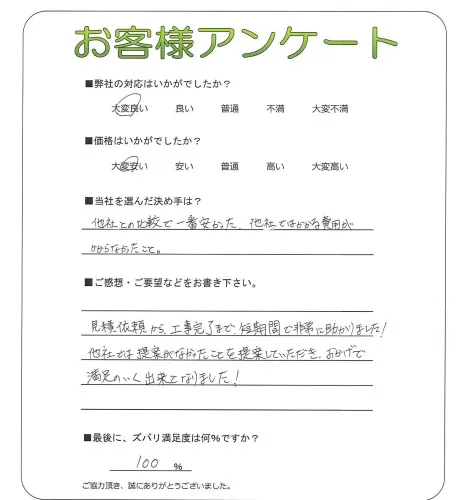 お客様アンケート
■弊社の対応はいかがでしたか?
大変良い 良い 普通 不満 大変不満
■価格はいかがでしたか?
大変安い 安い 普通 高い 大変高い
■当社を選んだ決め手は?
他社との比較で一番安かった、他社ではかかる費用が
かからなかったこと。
■ご感想・ご要望などをお書き下さい。
見積依頼から、工事完了まで、短期間で非常に助かりました!
他社では提案がなかったことを提案していただき、おかげで
満足のいく出来となりました!
■最後に、ズバリ満足度は何%ですか?
100 %
ご協力頂き、誠にありがとうございました。